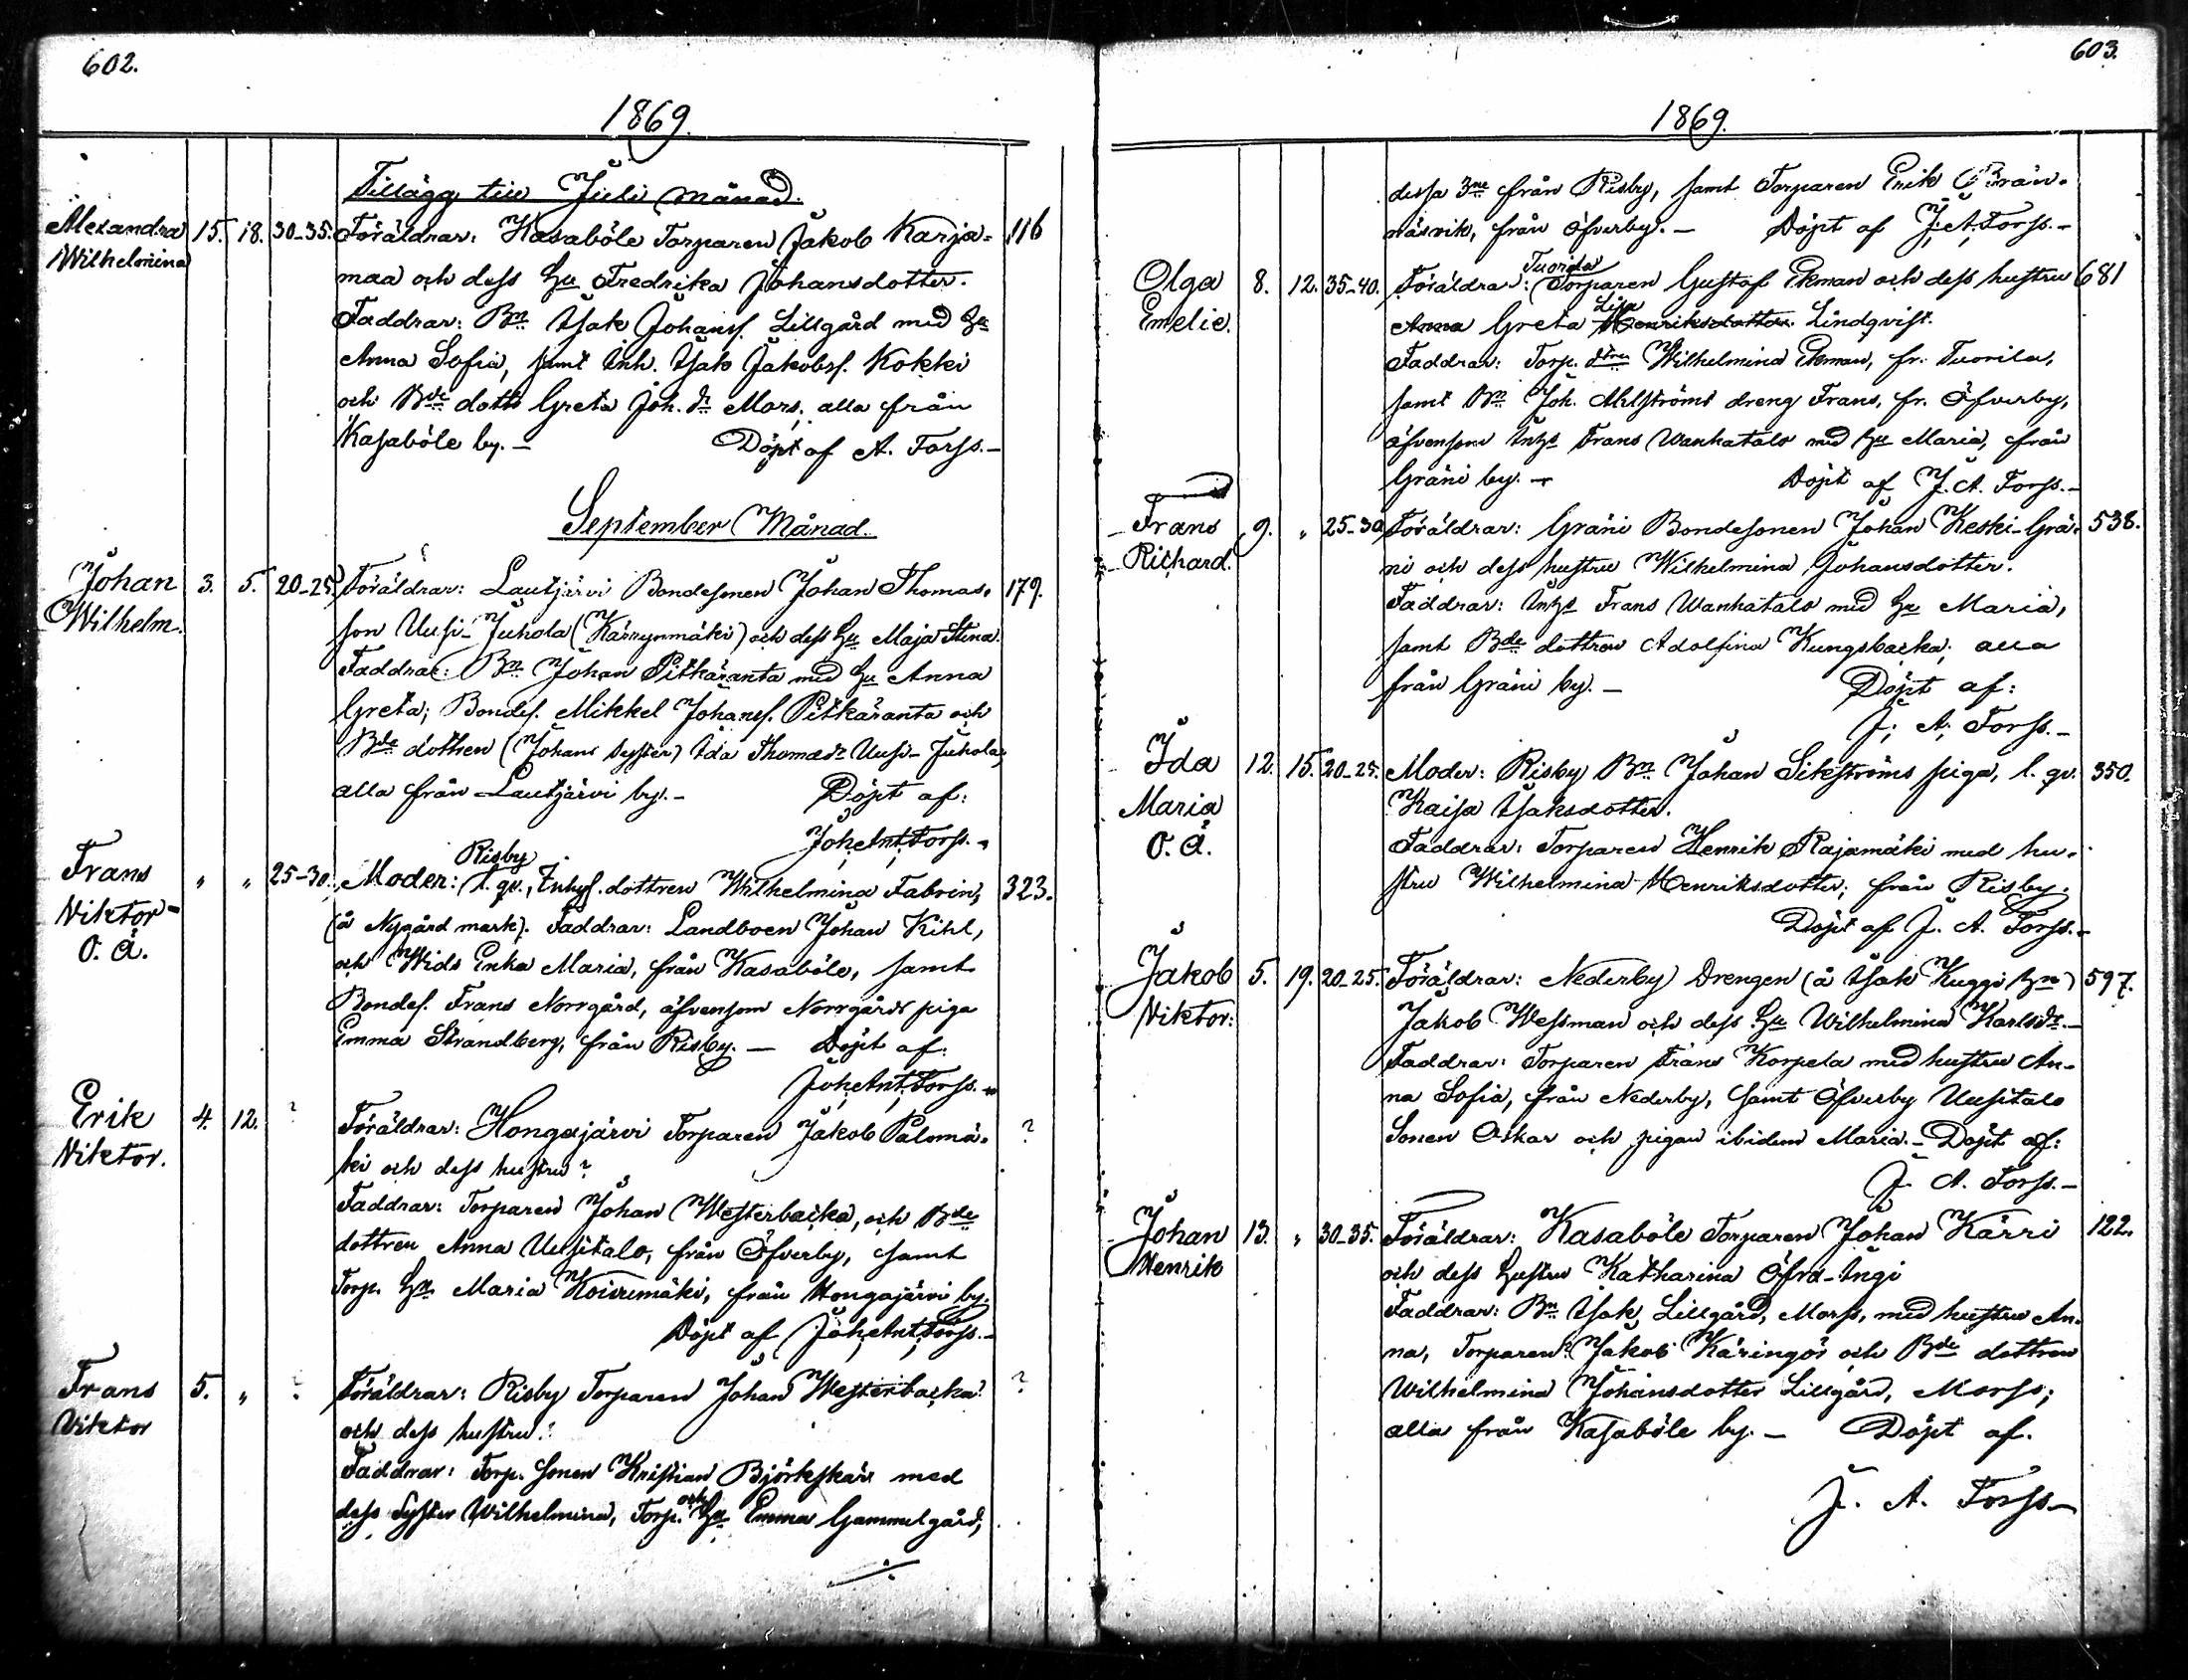 602.
1869.
Tillägg till Juli månad.
Alexandra 15. 18. 30-35. Föräldrar: Kasaböle Torparen Jakob Karja= 116
Wilhelmina
maa och dess Hu Fredrika Johansdotter.
Faddrar: Bn Isak Johanss. Lillgård med Hu
Anna Sofia, samt Inh. Isak Jakobss. Kokki
och Bde dottr Greta Joh. dr Mars, alla från
Kasaböle by. — Döpt af A. Forss. —
September Månad.
Johan 3. 5. 20-25. Föräldrar: Lautjärvi Bondesonen Johan Thomas= 179.
Wilhelm. son Uusi-Juhola (Kärrynmäki) och dess Hu Maja Stina.
Faddrar: Bn Johan Pitkäranta med Hu Anna
Greta; Bondes. Mikkel Johanss. Pitkäranta och
Bde dottren (Johans syster) Ida Thomasdr Uusi-Juhola,
alla från Lautjärvi by. — Döpt af:
Joh. Ant. Forss. —
Risby
Frans „ „ 25-30. Moder: l. qv., Inhys. dottren Wilhelmina Fabrin, 323.
Viktor (å Nygård mark). Faddrar: Landboen Johan Kihl,
O. Ä. och Wids Enka Maria, från Kasaböle, samt
Bondes. Frans Norrgård, äfvensom Norrgårds piga
Emma Strandberg, från Risby. — Döpt af:
Joh. Ant. Forss. —
Erik 4. 12. ? Föräldrar: Hongajärvi Torparen Jakob Palomä= ?
Viktor. ki och dess hustru?
Faddrar: Torparen Johan Westerbacka, och Bde
dottren Anna Uusitalo, från Öfverby, samt
Torp. Hu Maria Koivumäki, från Hongajärvi by.
Döpt af Joh. Ant. Forss. —
Frans 5. „ ? Föräldrar: Risby Torparen Johan Westerbacka? ?
Viktor och dess hustru?
Faddrar: Torp. sonen Kristian Björkskär med
och
dess Syster Wilhelmina, Torp. Hu Emma Gammelgård,
603.
1869.
dessa 3ne från Risby, samt Torparen Erik
näsvik, från Öfverby. — Döpt af J. A. Forss. —
Tuorila
Olga 8. 12. 35-40. Föräldrar: Torparen Gustaf Ekman och dess hustru 681
Lisa
Emelie. Anna Greta Henriksdotter Lindqvist.
Faddrar: Torp. dtrn Wilhelmina Ekman, fr. Tuorila,
samt Bn Joh. Ahlströms dreng Frans, fr. Öfverby,
äfvensom Inhs Frans Wanhatalo med Hu Maria, från
Gräni by. — Döpt af J. A. Forss. —
Frans 9. „ 25-30 Föräldrar: Gräni Bondesonen Johan Keski-Grä= 538.
Richard. ni och dess hustru Wilhelmina Johansdotter.
Faddrar: Inhs Frans Wanhatalo med Hu Maria,
samt Bde dottren Adolfina Kungsbacka; alla
från Gräni by. — Döpt af:
J. A. Forss. —
Ida 12. 15. 20-25. Moder: Risby Bn Johan Sikströms piga, l. qv. 350.
Maria Kaisa Isaksdotter.
O. Ä. Faddrar: Torparen Henrik Rajamäki med hu=
stru Wilhelmina Henriksdotter; från Risby.
Döpt af J. A. Forss. —
Jakob 5. 19. 20-25. Föräldrar: Nederby Drengen (å Isak Kuggi hn) 597.
Viktor: Jakob Wessman och dess Hu Wilhelmina Karlsdr. —
Faddrar: Torparen Frans Korpela med hustru An=
na Sofia, från Nederby, samt Öfverby Uusitalo
Sonen Oskar och pigan ibidem Maria. — Döpt af:
J. A. Forss. —
Johan 13. „ 30-35. Föräldrar: Kasaböle Torparen Johan Kärri 122.
Henrik och dess Hustru Katharina Öfrd-Ingi
Faddrar: Bn Isak Lillgård, Morss, med hustru An=
na, Torparen Jakob Käringös och Bde dottren
Wilhelmina Johansdotter Lillgård, Morss;
alla från Kasaböle by. — Döpt af.
J. A. Forss —